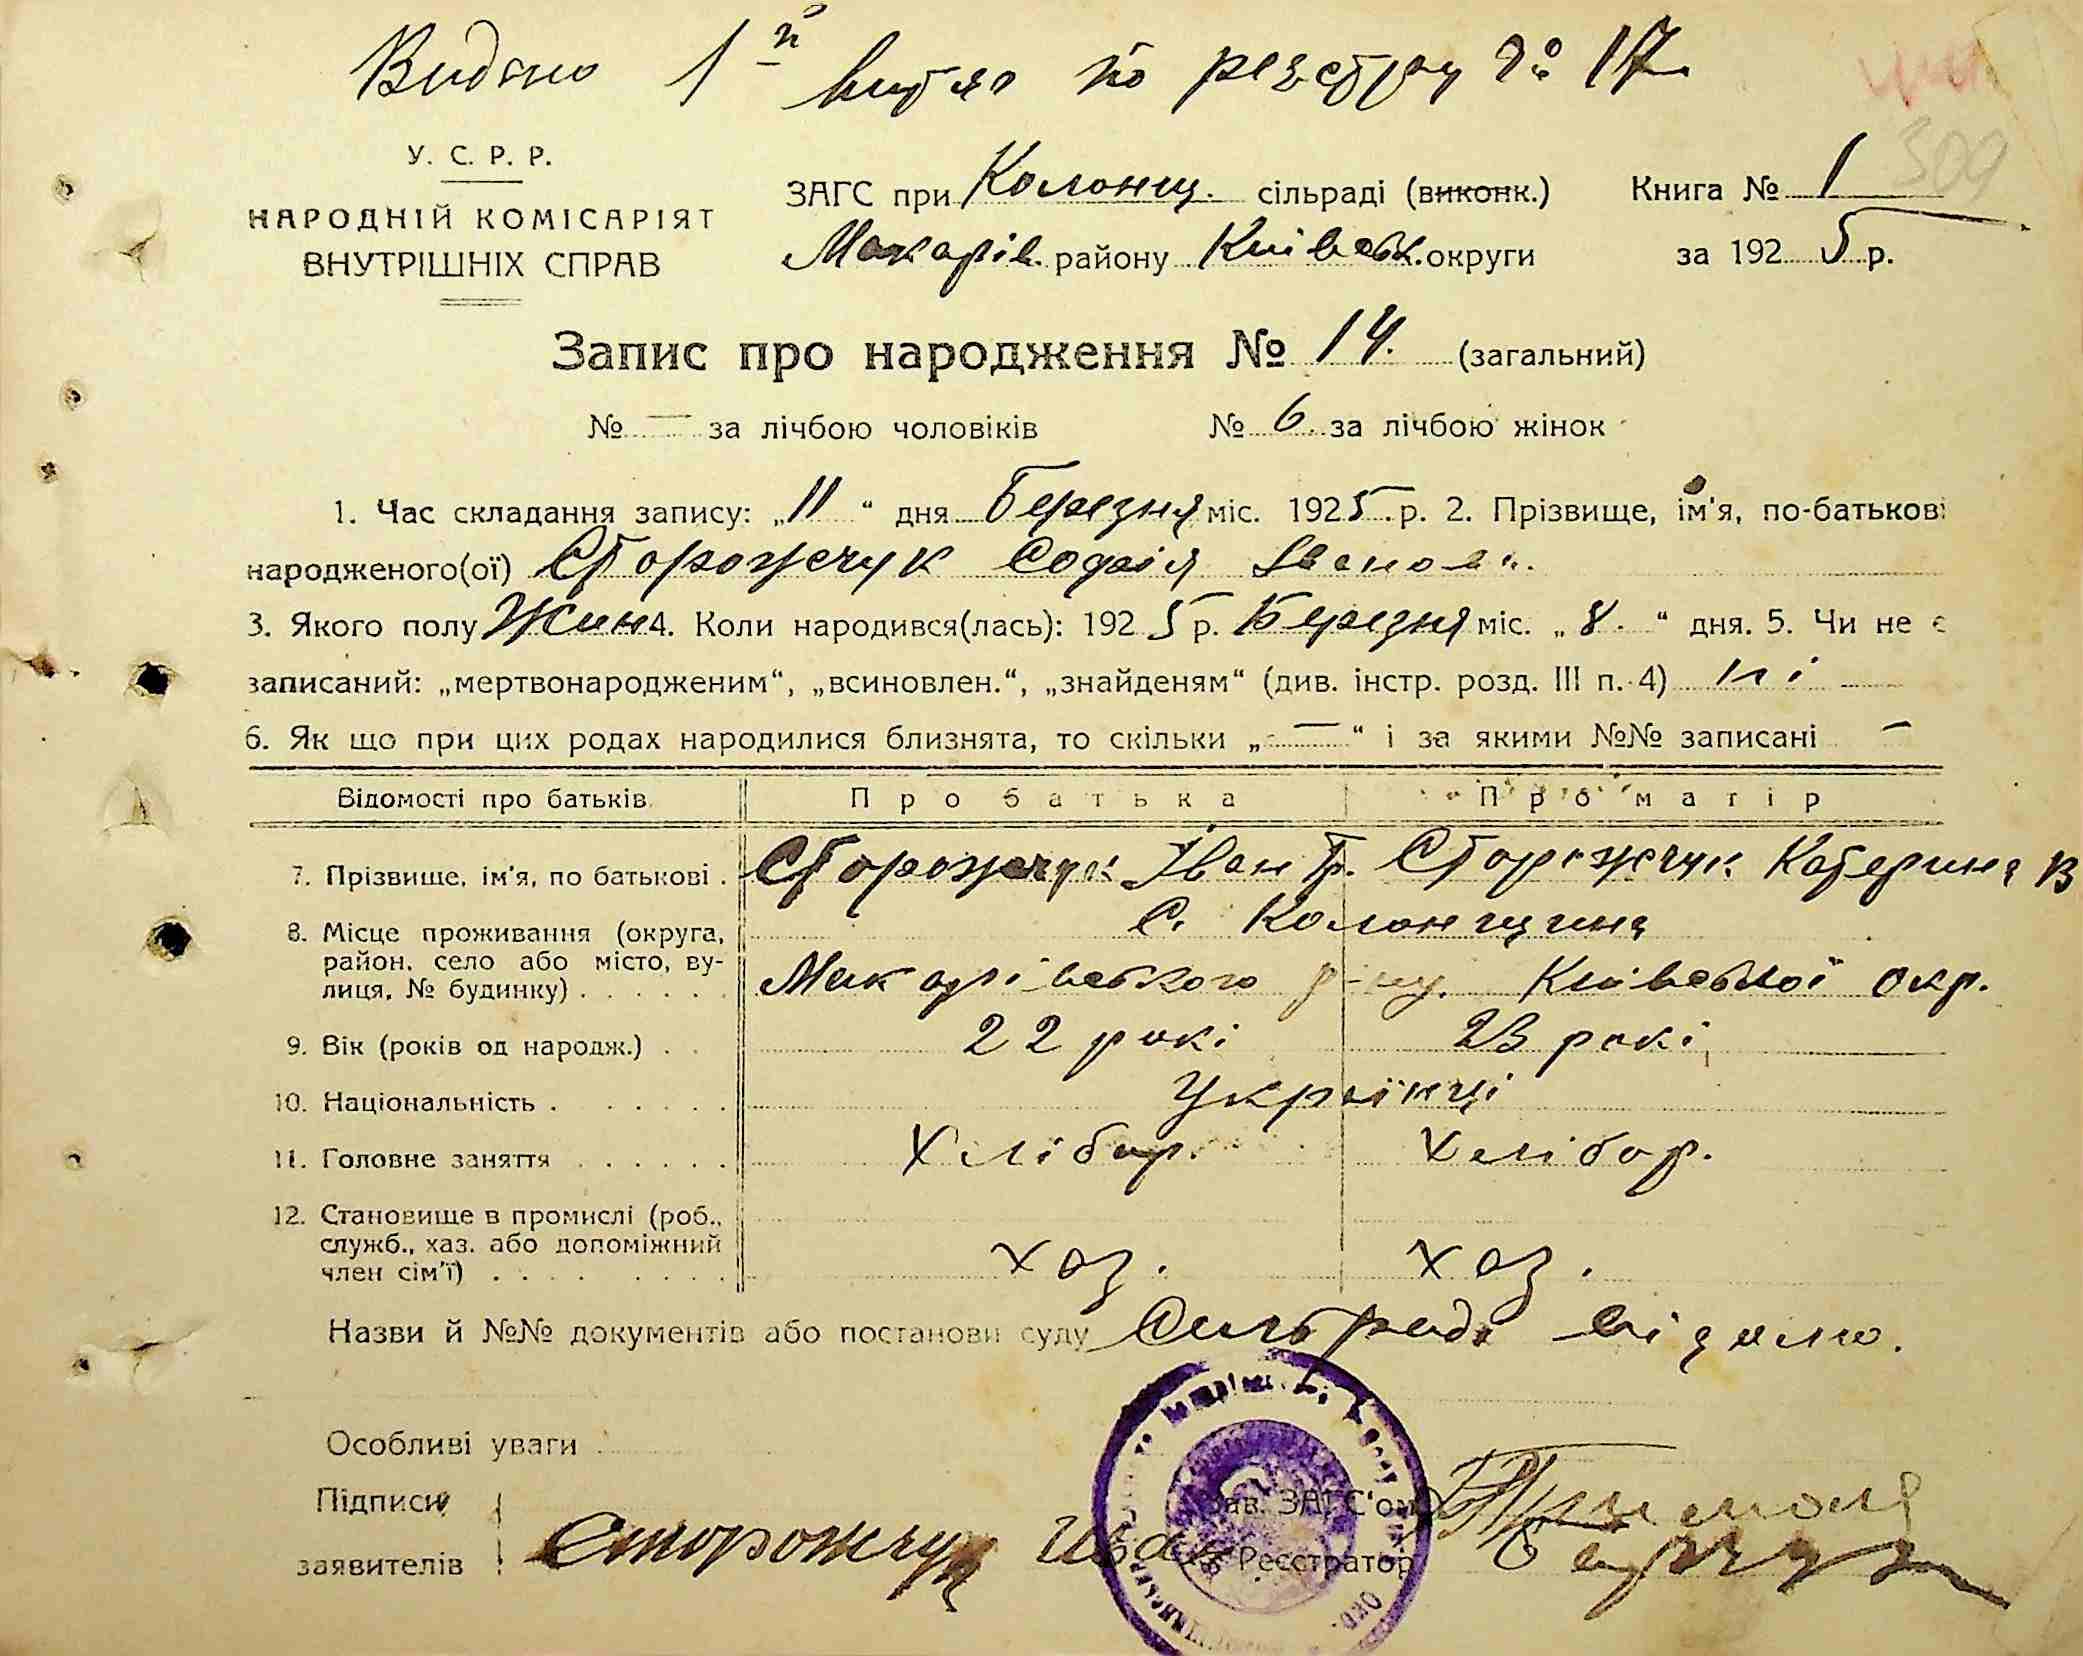 Видано 1й витяг по реєстру № 17.
309
У. С. Р. Р.
НАРОДНІЙ КОМІСАРІЯТ
ВНУТРІШНІХ СПРАВ
ЗАГС при Колонщ. сільраді (виконк.) Книга № 1
Макарів. району Київськ. округи за 1925 р.
Запис про народження № 14. (загальний)
№ — за лічбою чоловіків № 6. за лічбою жінок
1. Час складання запису: „11“ дня Березня міс. 1925 р. 2. Прізвище, ім'я, по-батькові
народженого(ої) Сторожчук Софія Іванов.
3. Якого полу Жин 4. Коли народився(лась): 1925 р. Березня міс. „8.“ дня. 5. Чи не є
записаний: „мертвонародженим“, „всиновлен.“, „знайденям“ (див. інстр. розд. III п. 4) ні
6. Як що при цих родах народилися близнята, то скільки „—“ і за якими №№ записані —
Відомості про батьків Про батька Про матір
7. Прізвище, ім'я, по батькові . Сторожчук Іван Гр. Сторожчук Катерина В
8. Місце проживання (округа, С. Колонщина
район, село або місто, ву-
лиця, № будинку) . . . . . . Макарівського р-ну. Київської окр.
9. Вік (років од народж.) . . 22 рокі 23 рокі
10. Національність . . . . . . Українці
11. Головне заняття . . . . . . Хлібор. Хлібор.
12. Становище в промислі (роб.,
служб., хаз. або допоміжний
член сім'ї) . . . . . . . . хаз. хаз.
Назви й №№ документів або постанови суду Сильраді відомо.
Особливі уваги
Підписи Зав. ЗАГС'ом
заявителів Сторожчук Иван Реєстратор